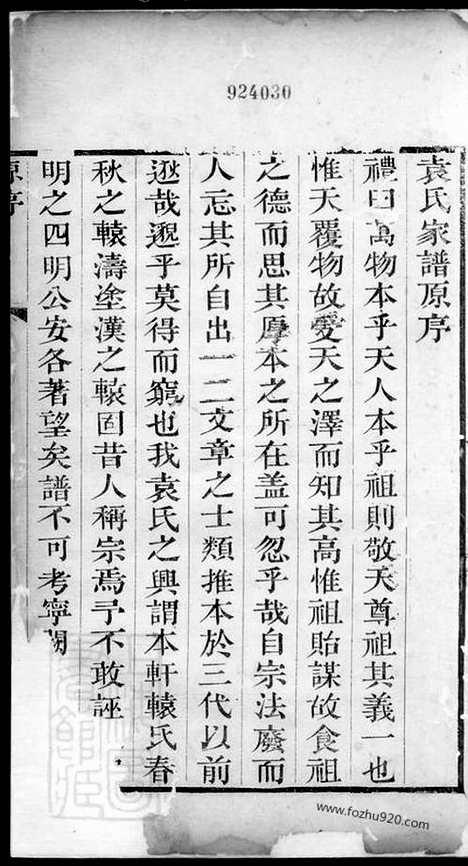 924030
袁氏家譜原序
禮曰萬物本乎天人本乎祖則敬天尊祖其義一也
惟天覆物故愛天之澤而知其高惟祖貽謀故食祖
之德而思其厚本之所在盖可忽乎哉自宗法廢而
人忘其所自出一二文章之士類推本於三代以前
逖哉邈乎莫得而窮也我袁氏之興謂本軒轅氏春
秋之轅濤塗漢之轅固昔人稱宗焉予不敢誣
明之四明公安各著望矣譜不可考寧闕
原序
www.fozhu920.com